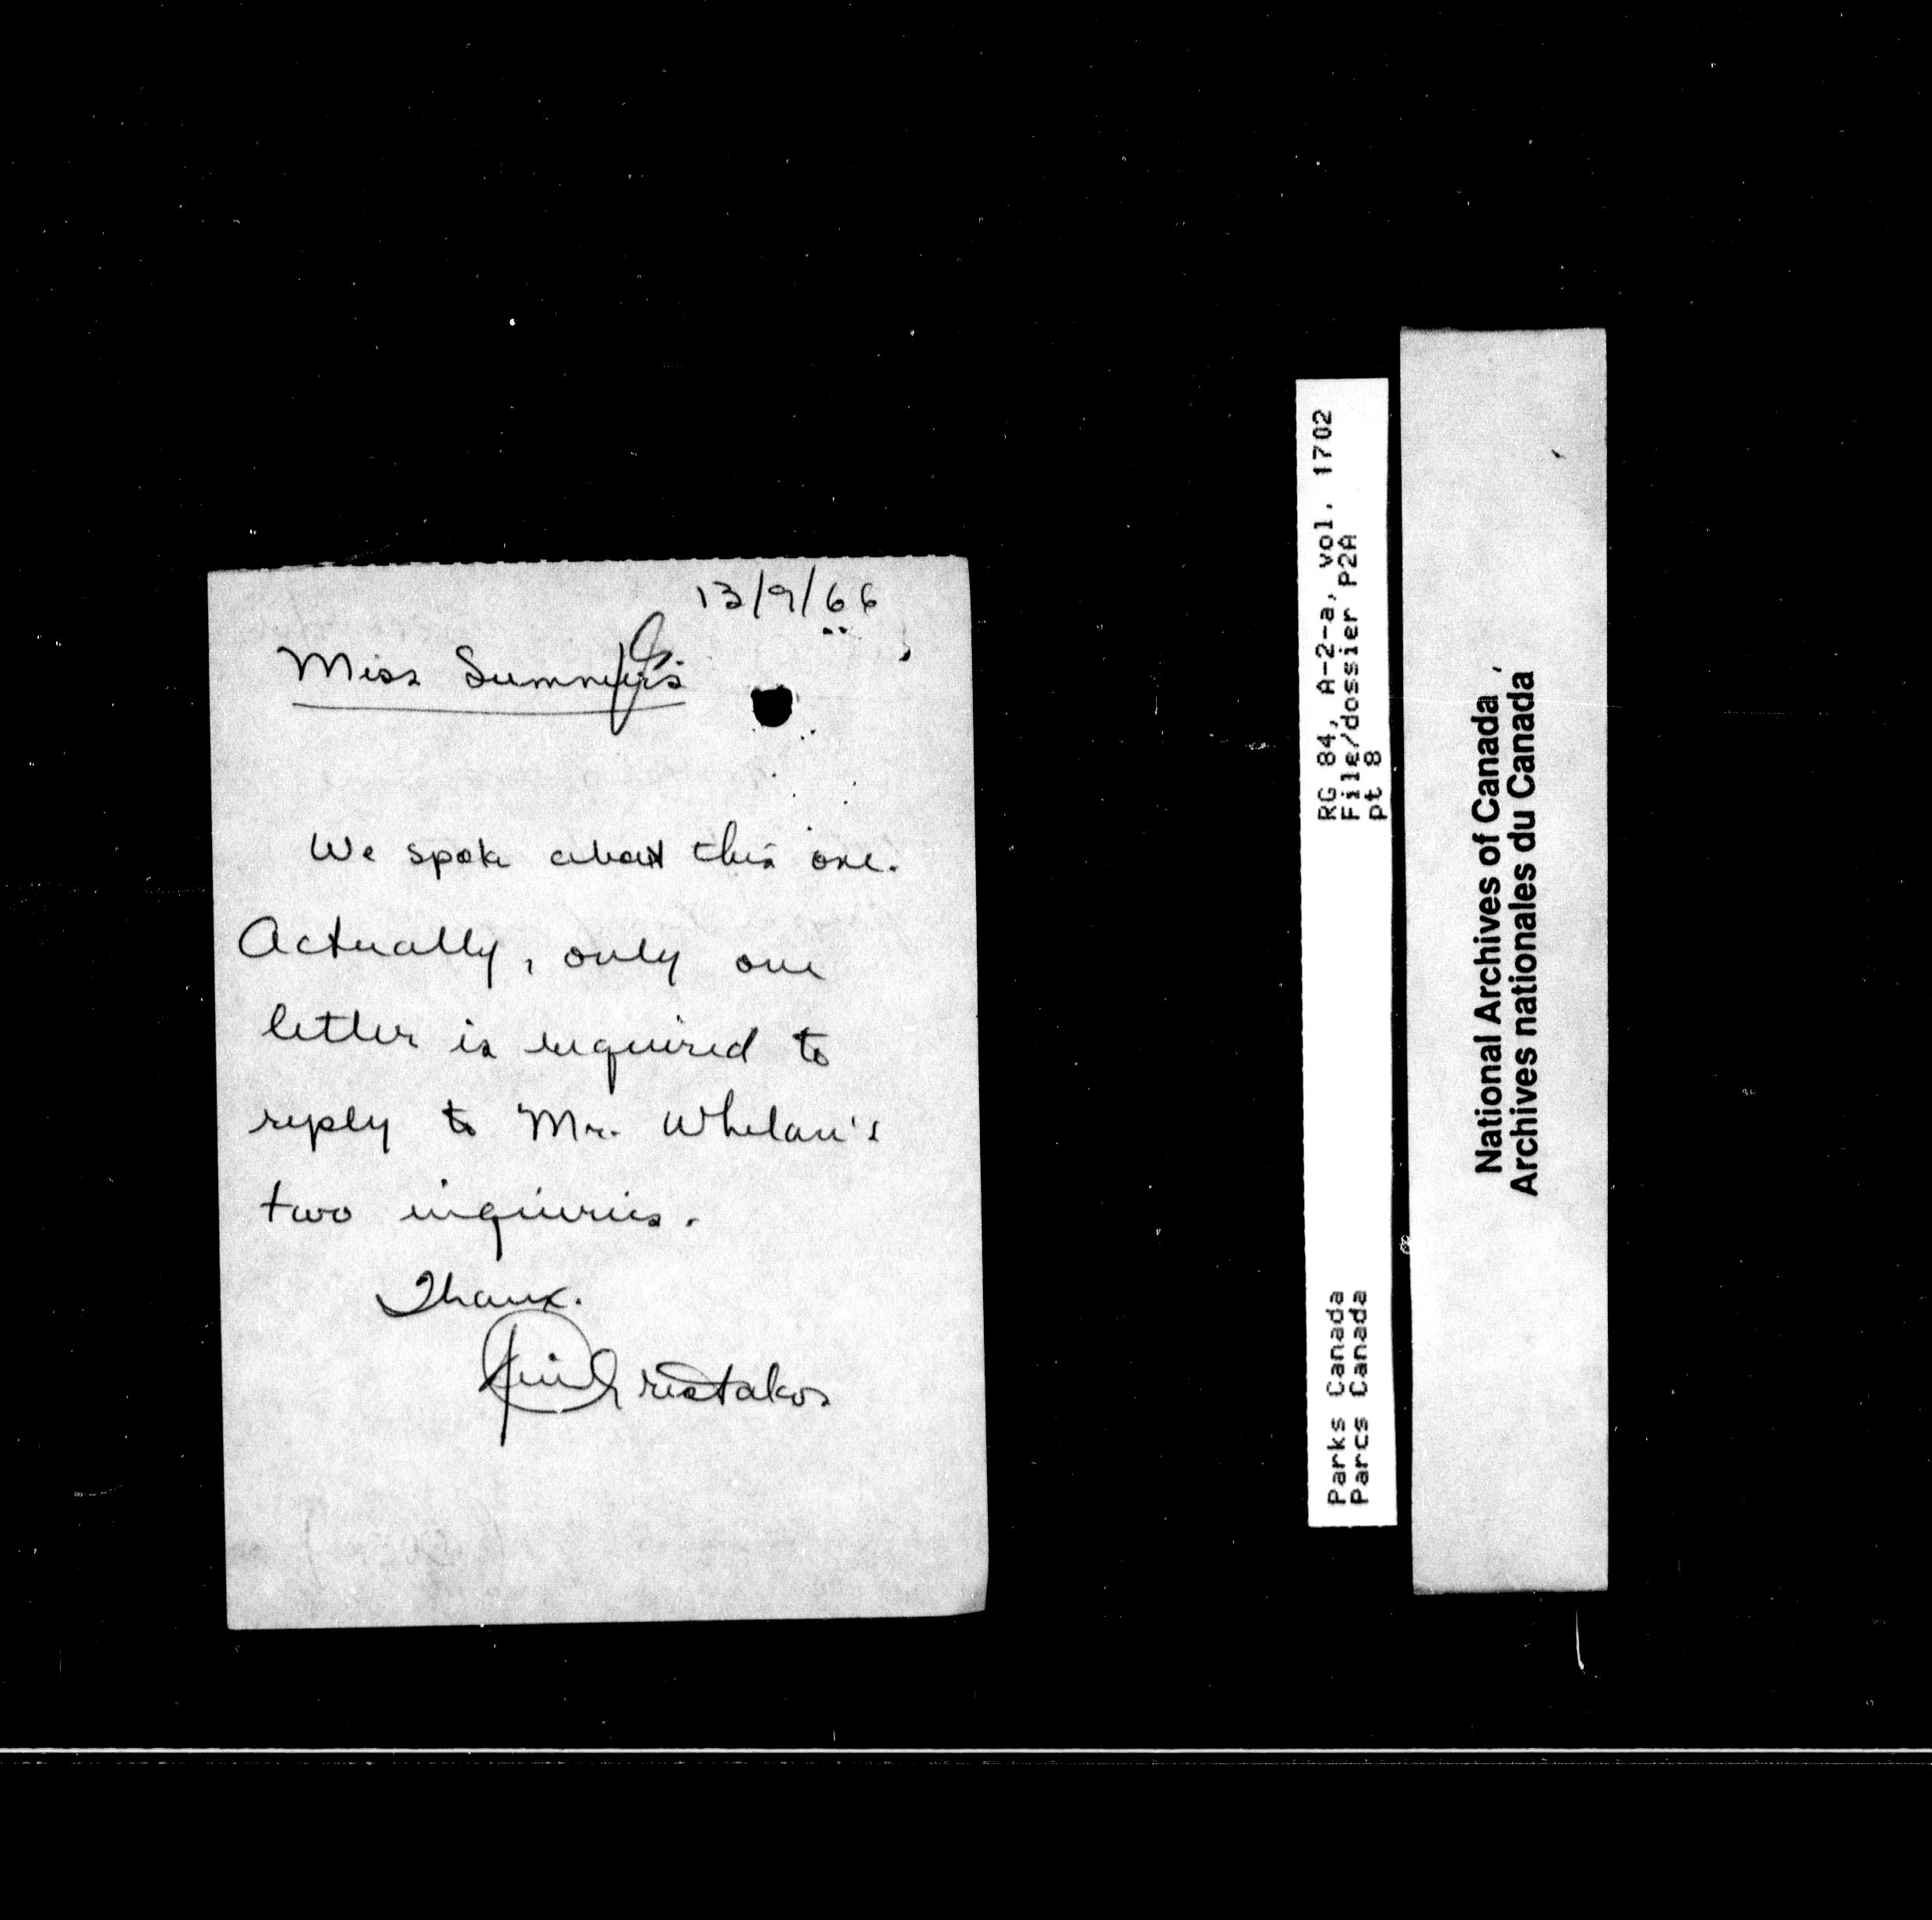 13/9/66
Miss Summers
We spoke about this one.
Actually, only one
letter is required to
reply to Mr. Whelan's
two inquiries.
Thanx.
RG 84, A-2-a, vol. 1702
File/dossier P2A
pt 8
Parks Canada
Parcs Canada
National Archives of Canada
Archives nationales du Canada